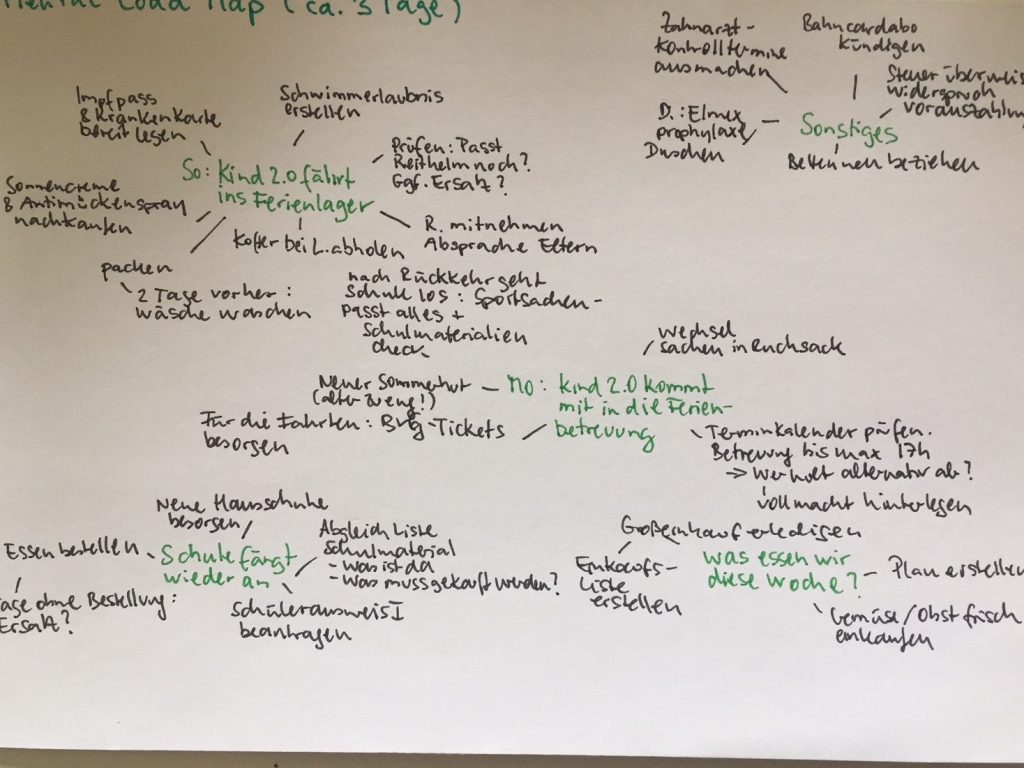 Mental Load Map (ca. 3 Tage)
Impfpass
& Krankenkarte
bereit legen
Schwimmerlaubnis
erstellen
Prüfen: Passt
Reithelm noch?
Ggf. Ersatz?
So: Kind 2.0 fährt
ins Ferienlager
Sonnencreme
& Antimückenspray
nachkaufen
Koffer bei L. abholen
R. mitnehmen
Absprache Eltern
packen
2 Tage vorher:
wäsche waschen
nach Rückkehr geht
Schule los: Sportsachen-
passt alles +
Schulmaterialien
check
Zahnarzt-
kontrolltermine
ausmachen
Bahncardabo
kündigen
Steuer überweis
widerspruch
vorauszahlung
D.: Elmex
prophylaxe
Duschen
Sonstiges
Betten neu beziehen
wechsel
sachen in Rucksack
Neuer Sommerhut
(alter zu eng!)
Mo: Kind 2.0 kommt
mit in die Ferien-
betreuung
Für die Fahrten: Bvg-Tickets
besorgen
Terminkalender prüfen.
Betreuung bis max 17h
→ Wer holt alternativ ab?
vollmacht hinterlegen
Neue Hausschuhe
besorgen
Essen bestellen
Schule fängt
wieder an
Abgleich Liste
Schulmaterial
- was ist da
- was muss gekauft werden?
Tage ohne Bestellung:
Ersatz?
Schülerausweis I
beantragen
Großeinkauf erledigen
Einkaufs-
liste
erstellen
was essen wir
diese Woche?
Plan erstellen
Gemüse/Obst frisch
einkaufen